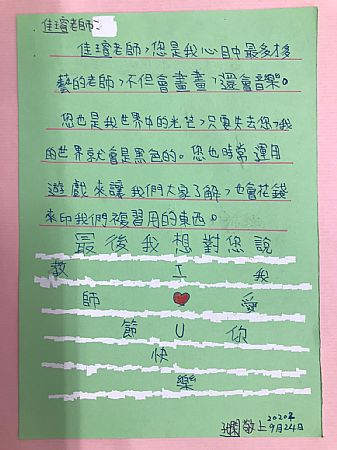 佳璿老師:
佳璿老師,您是我心目中最多才多
藝的老師,不但會畫畫,還會音樂。
您也是我世界中的光芒,只要失去您,我
的世界就會是黑色的。您也時常運用
遊戲來讓我們大家了解,也會花錢
來印我們複習用的東西。
最後我想對您說
教 I 我
師 ❤ 愛
節 U 你
快
樂
敬上 2020年
9月24日